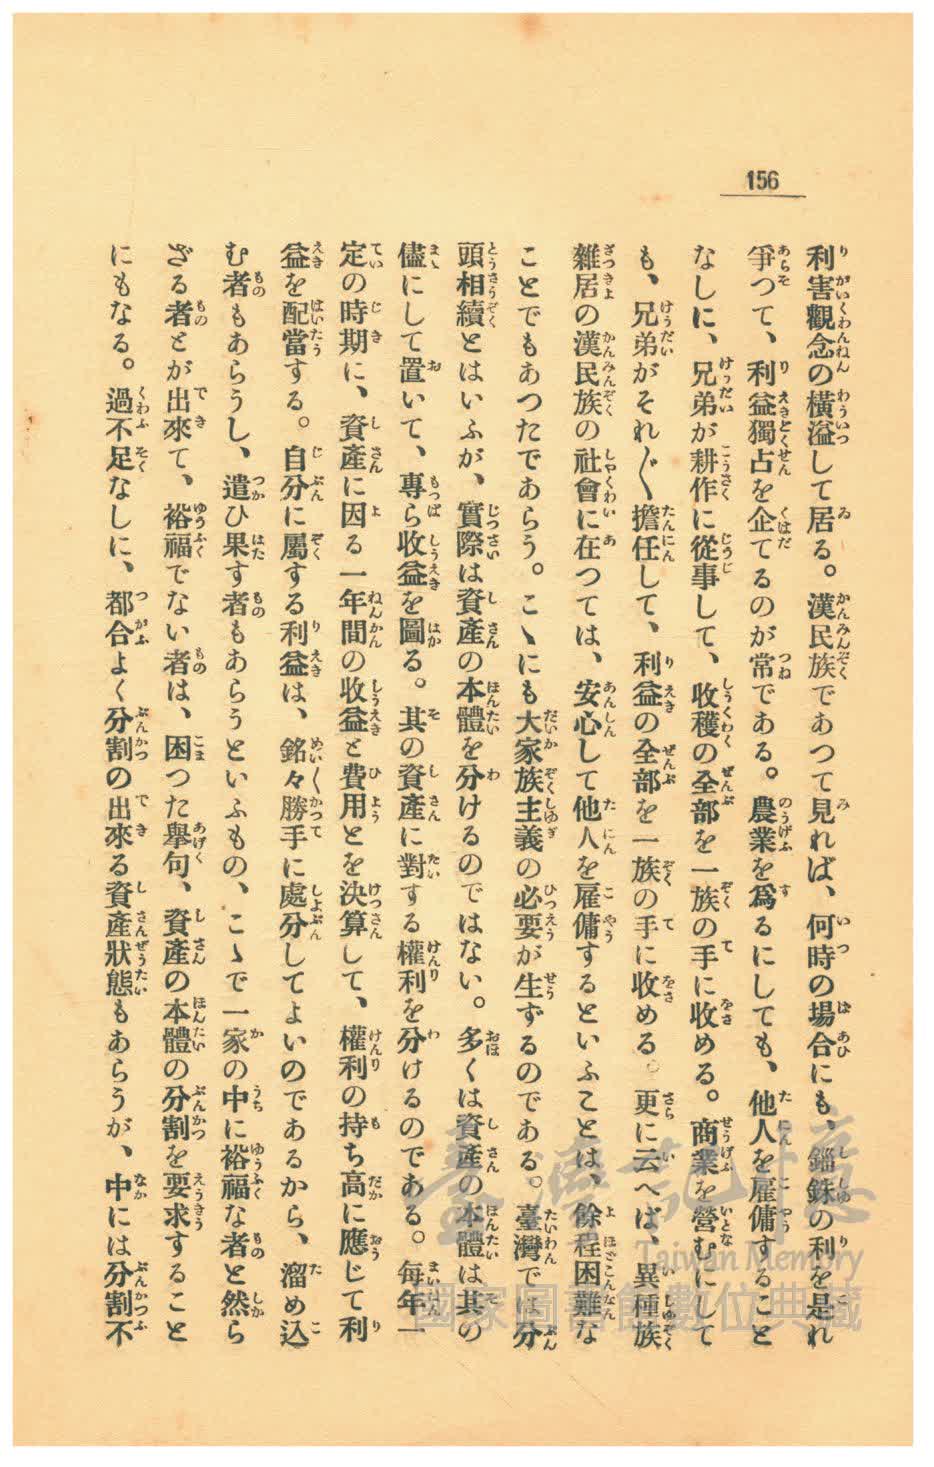 156
利害觀念の横溢して居る。漢民族であつて見れば、何時の場合にも、錙銖の利を是れ
爭つて、利益獨占を企てるのが常である。農業を爲るにしても、他人を雇傭すること
なしに、兄弟が耕作に從事して、收穫の全部を一族の手に收める。商業を營むにして
も、兄弟がそれ〲擔任して、利益の全部を一族の手に收める。更に云へば、異種族
雜居の漢民族の社會に在つては、安心して他人を雇傭するといふことは、餘程困難な
ことでもあつたであらう。こゝにも大家族主義の必要が生ずるのである。臺灣では分
頭相續とはいふが、實際は資產の本體を分けるのではない。多くは資產の本體は其の
儘にして置いて、專ら收益を圖る。其の資產に對する權利を分けるのである。每年一
定の時期に、資產に因る一年間の收益と費用とを決算して、權利の持ち高に應じて利
益を配當する。自分に屬する利益は、銘々〱勝手に處分してよいのであるから、溜め込
む者もあらうし、遣ひ果す者もあらうといふもの、こゝで一家の中に裕福な者と然ら
ざる者とが出來て、裕福でない者は、困つた擧句、資產の本體の分割を要求すること
にもなる。過不足なしに、都合よく分割の出來る資產狀態もあらうが、中には分割不
臺灣記憶
Taiwan Memory
國家圖書館數位典藏